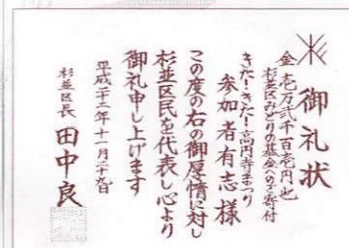 御礼状
金壱万弐千百壱円也
杉並区みどりの基金へのご寄付
きた!きた!高円寺まつり
参加者有志様
この度の右の御厚情に対し
杉並区民を代表し心より
御礼申し上げます
平成二十二年十一月二十九日
杉並区長 田中良